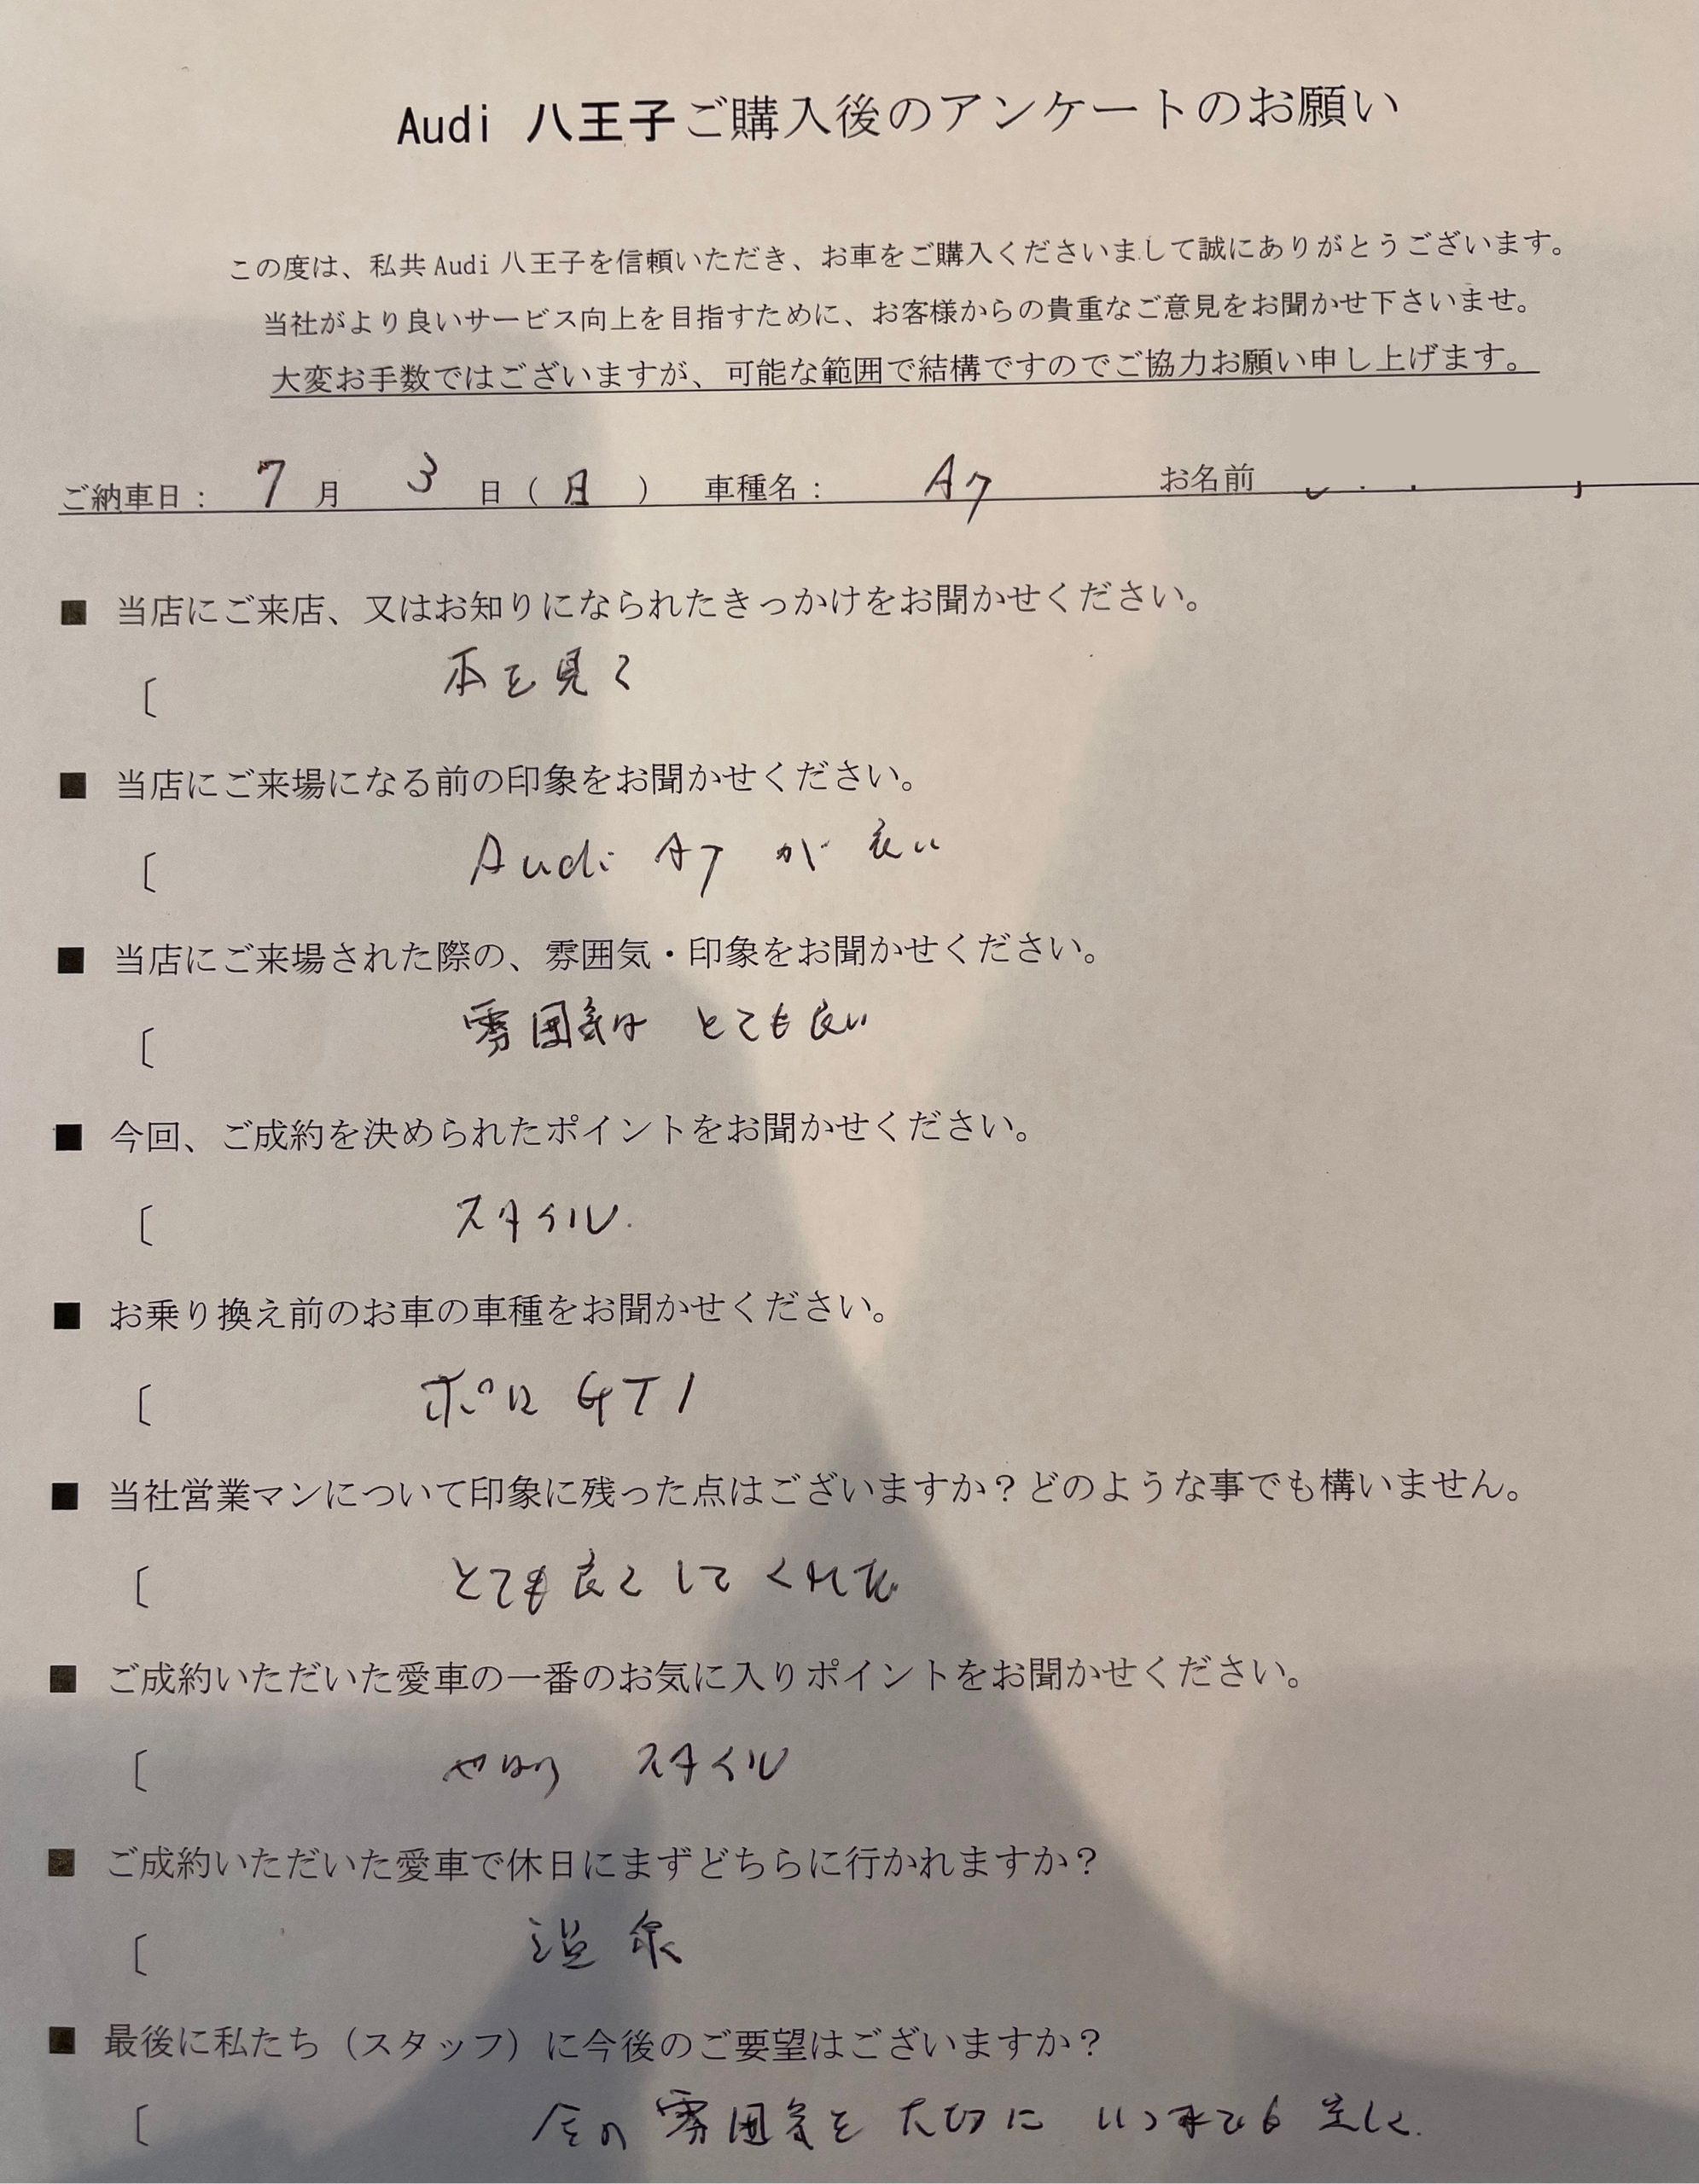 Audi 八王子ご購入後のアンケートのお願い
この度は、私共Audi八王子を信頼いただき、お車をご購入くださいまして誠にありがとうございます。
当社がより良いサービス向上を目指すために、お客様からの貴重なご意見をお聞かせ下さいませ。
大変お手数ではございますが、可能な範囲で結構ですのでご協力お願い申し上げます。
ご納車日: 7 月 3 日(日) 車種名: A7 お名前
■ 当店にご来店、又はお知りになられたきっかけをお聞かせください。
〔 本を見て
■ 当店にご来場になる前の印象をお聞かせください。
〔 Audi A7 が 良い
■ 当店にご来場された際の、雰囲気・印象をお聞かせください。
〔 雰囲気は とても良い
■ 今回、ご成約を決められたポイントをお聞かせください。
〔 スタイル.
■ お乗り換え前のお車の車種をお聞かせください。
〔 ポロ GTI
■ 当社営業マンについて印象に残った点はございますか?どのような事でも構いません。
〔 とても良くしてくれた
■ ご成約いただいた愛車の一番のお気に入りポイントをお聞かせください。
〔 やはり スタイル
■ ご成約いただいた愛車で休日にまずどちらに行かれますか?
〔 温泉
■ 最後に私たち(スタッフ)に今後のご要望はございますか?
〔 今の 雰囲気を 大切に いつまでも